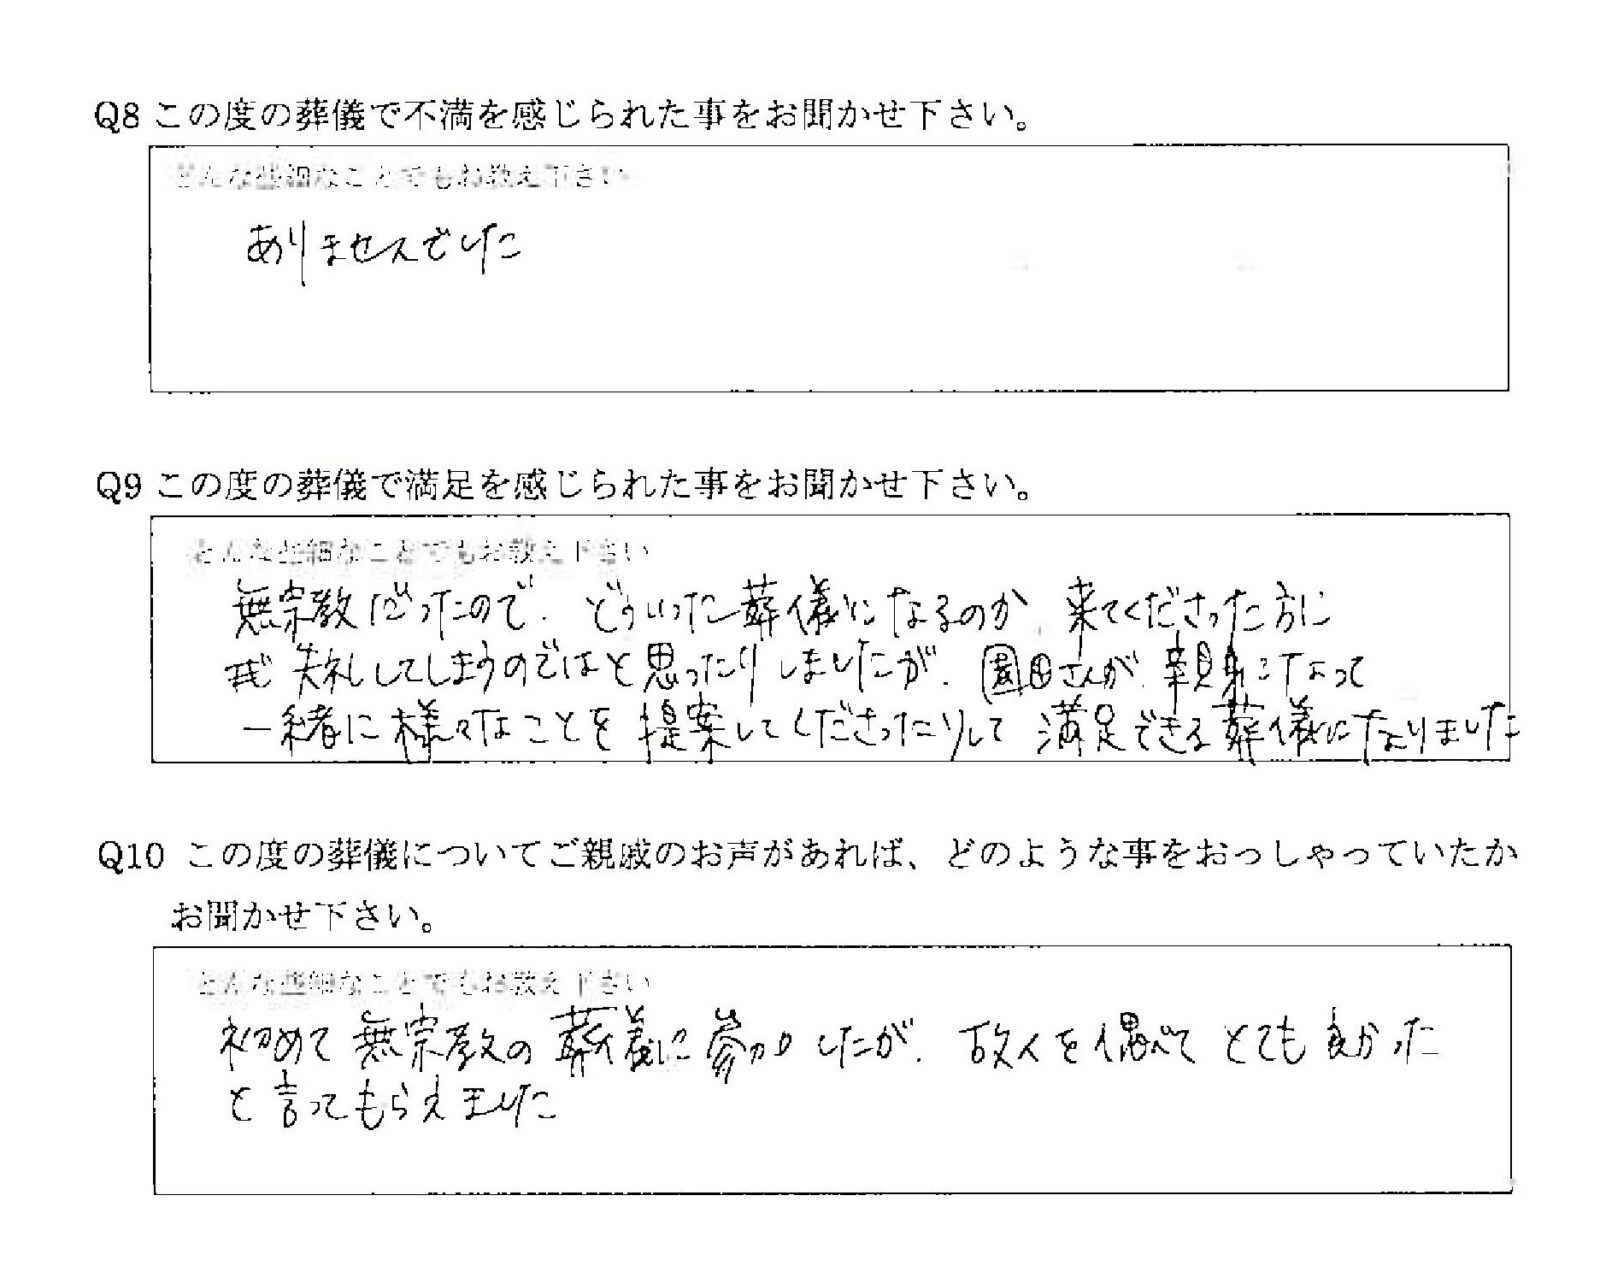 Q8 この度の葬儀で不満を感じられた事をお聞かせ下さい。
どんな些細なことでもお教え下さい
ありませんでした
Q9 この度の葬儀で満足を感じられた事をお聞かせ下さい。
どんな些細なことでもお教え下さい
無宗教だったので、どういった葬儀になるのか、来てくださった方に
失礼してしまうのではと思ったりしましたが、園田さんが、親身になって
一緒に様々なことを提案してくださったりして 満足できる葬儀になりました
Q10 この度の葬儀についてご親戚のお声があれば、どのような事をおっしゃっていたか
お聞かせ下さい。
どんな些細なことでもお教え下さい
初めて無宗教の葬儀に参加したが、故人を偲べて とても良かった
と言ってもらえました